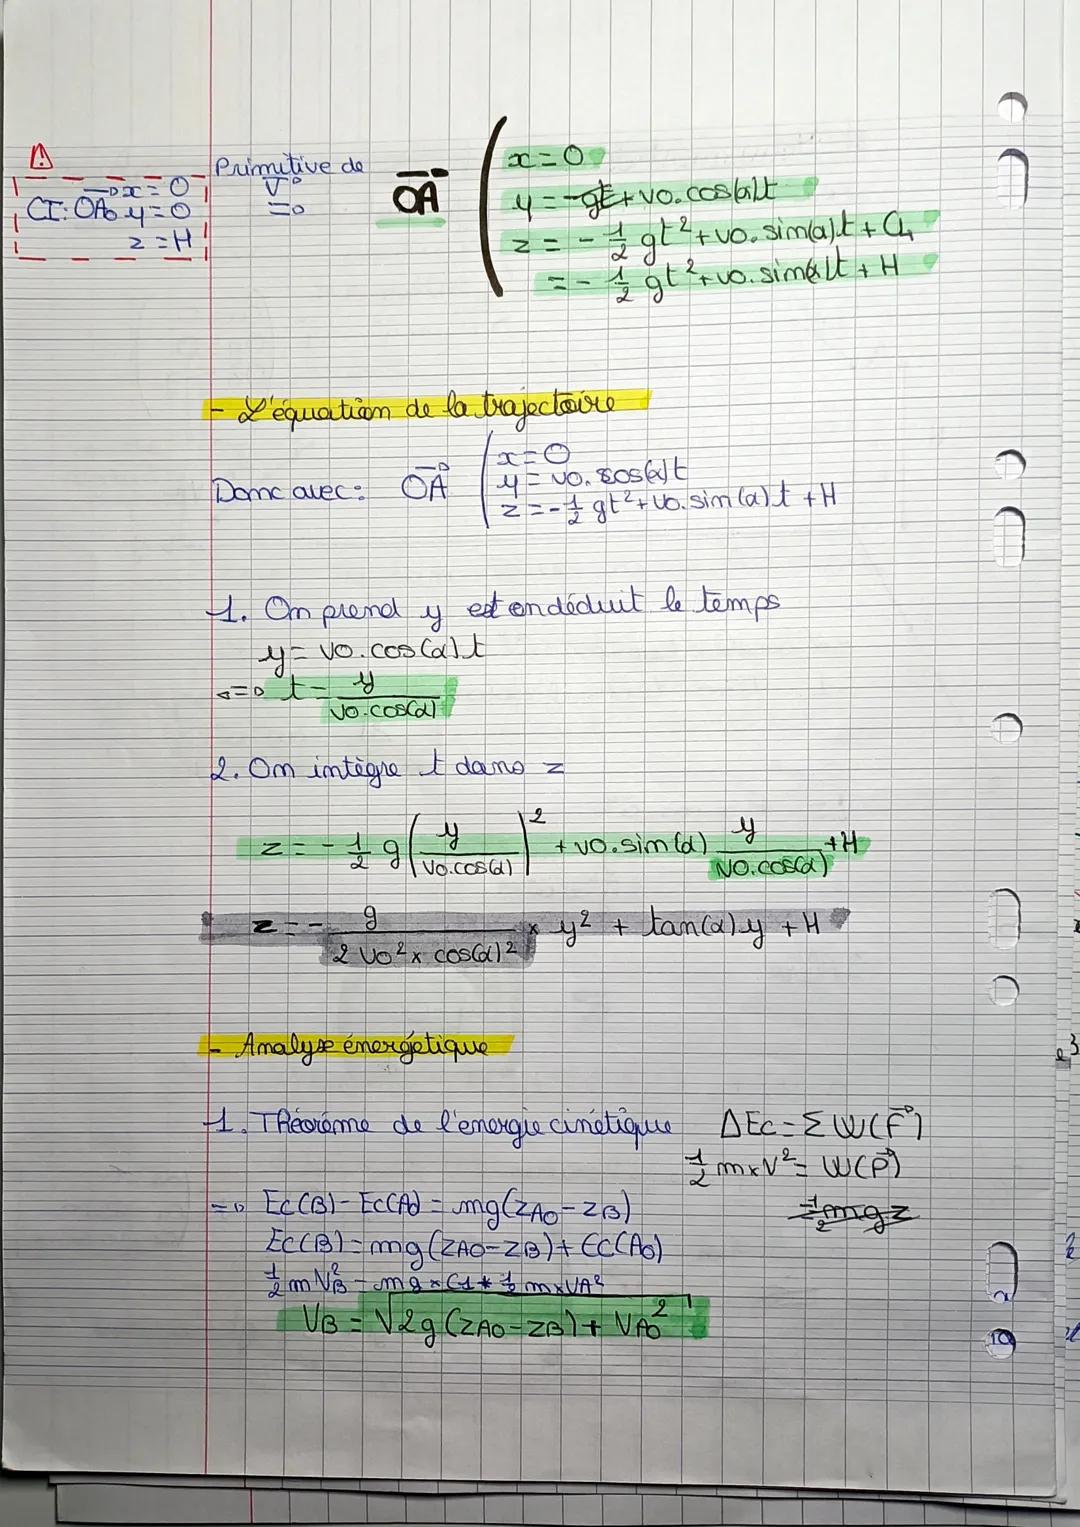 ⚠
CI: OA₀ x = 0
y = 0
z = H
Primitive de
V⃗
=>
OA⃗
x = 0
y = -gt + v0.cos(α)t
z = -1/2 gt² + v0.sin(α)t + C4
= -1/2 gt² + v0.sin(α)t + H
- L'équation de la trajectoire
Donc avec : OA⃗
x = 0
y = v0.cos(α)t
z = -1/2 gt² + v0.sin(α)t + H
1. On prend y est on déduit le temps
y = v0.cos(α)t
<=> t = y/(v0.cos(α))
2. On intègre t dans z
z = -1/2 g(y/(v0.cos(α)))² + v0.sin(α) y/(v0.cos(α)) + H
z = - g/(2 v0² × cos(α)²) × y² + tan(α)y + H
- Analyse énergétique
1. Théorème de l'énergie cinétique ΔEc = Σ W(F⃗)
1/2 m×V² = W(P⃗)
=> Ec(B) - Ec(A₀) = mg(zA0 - zB)
Ec(B) = mg(zA0 - zB) + Ec(A0)
VB = √(2g(zA0 - zB) + VA0²)